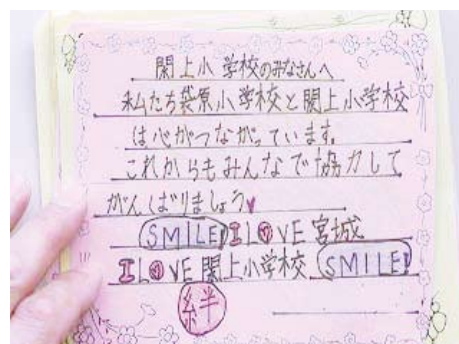 閖上小学校のみなさんへ
私たち袋原小学校と閖上小学校
は心がつながっています。
これからもみんなで協力して
がんばりましょう♥
SMILE I LOVE 宮城
I LOVE 閖上小学校 SMILE!
絆